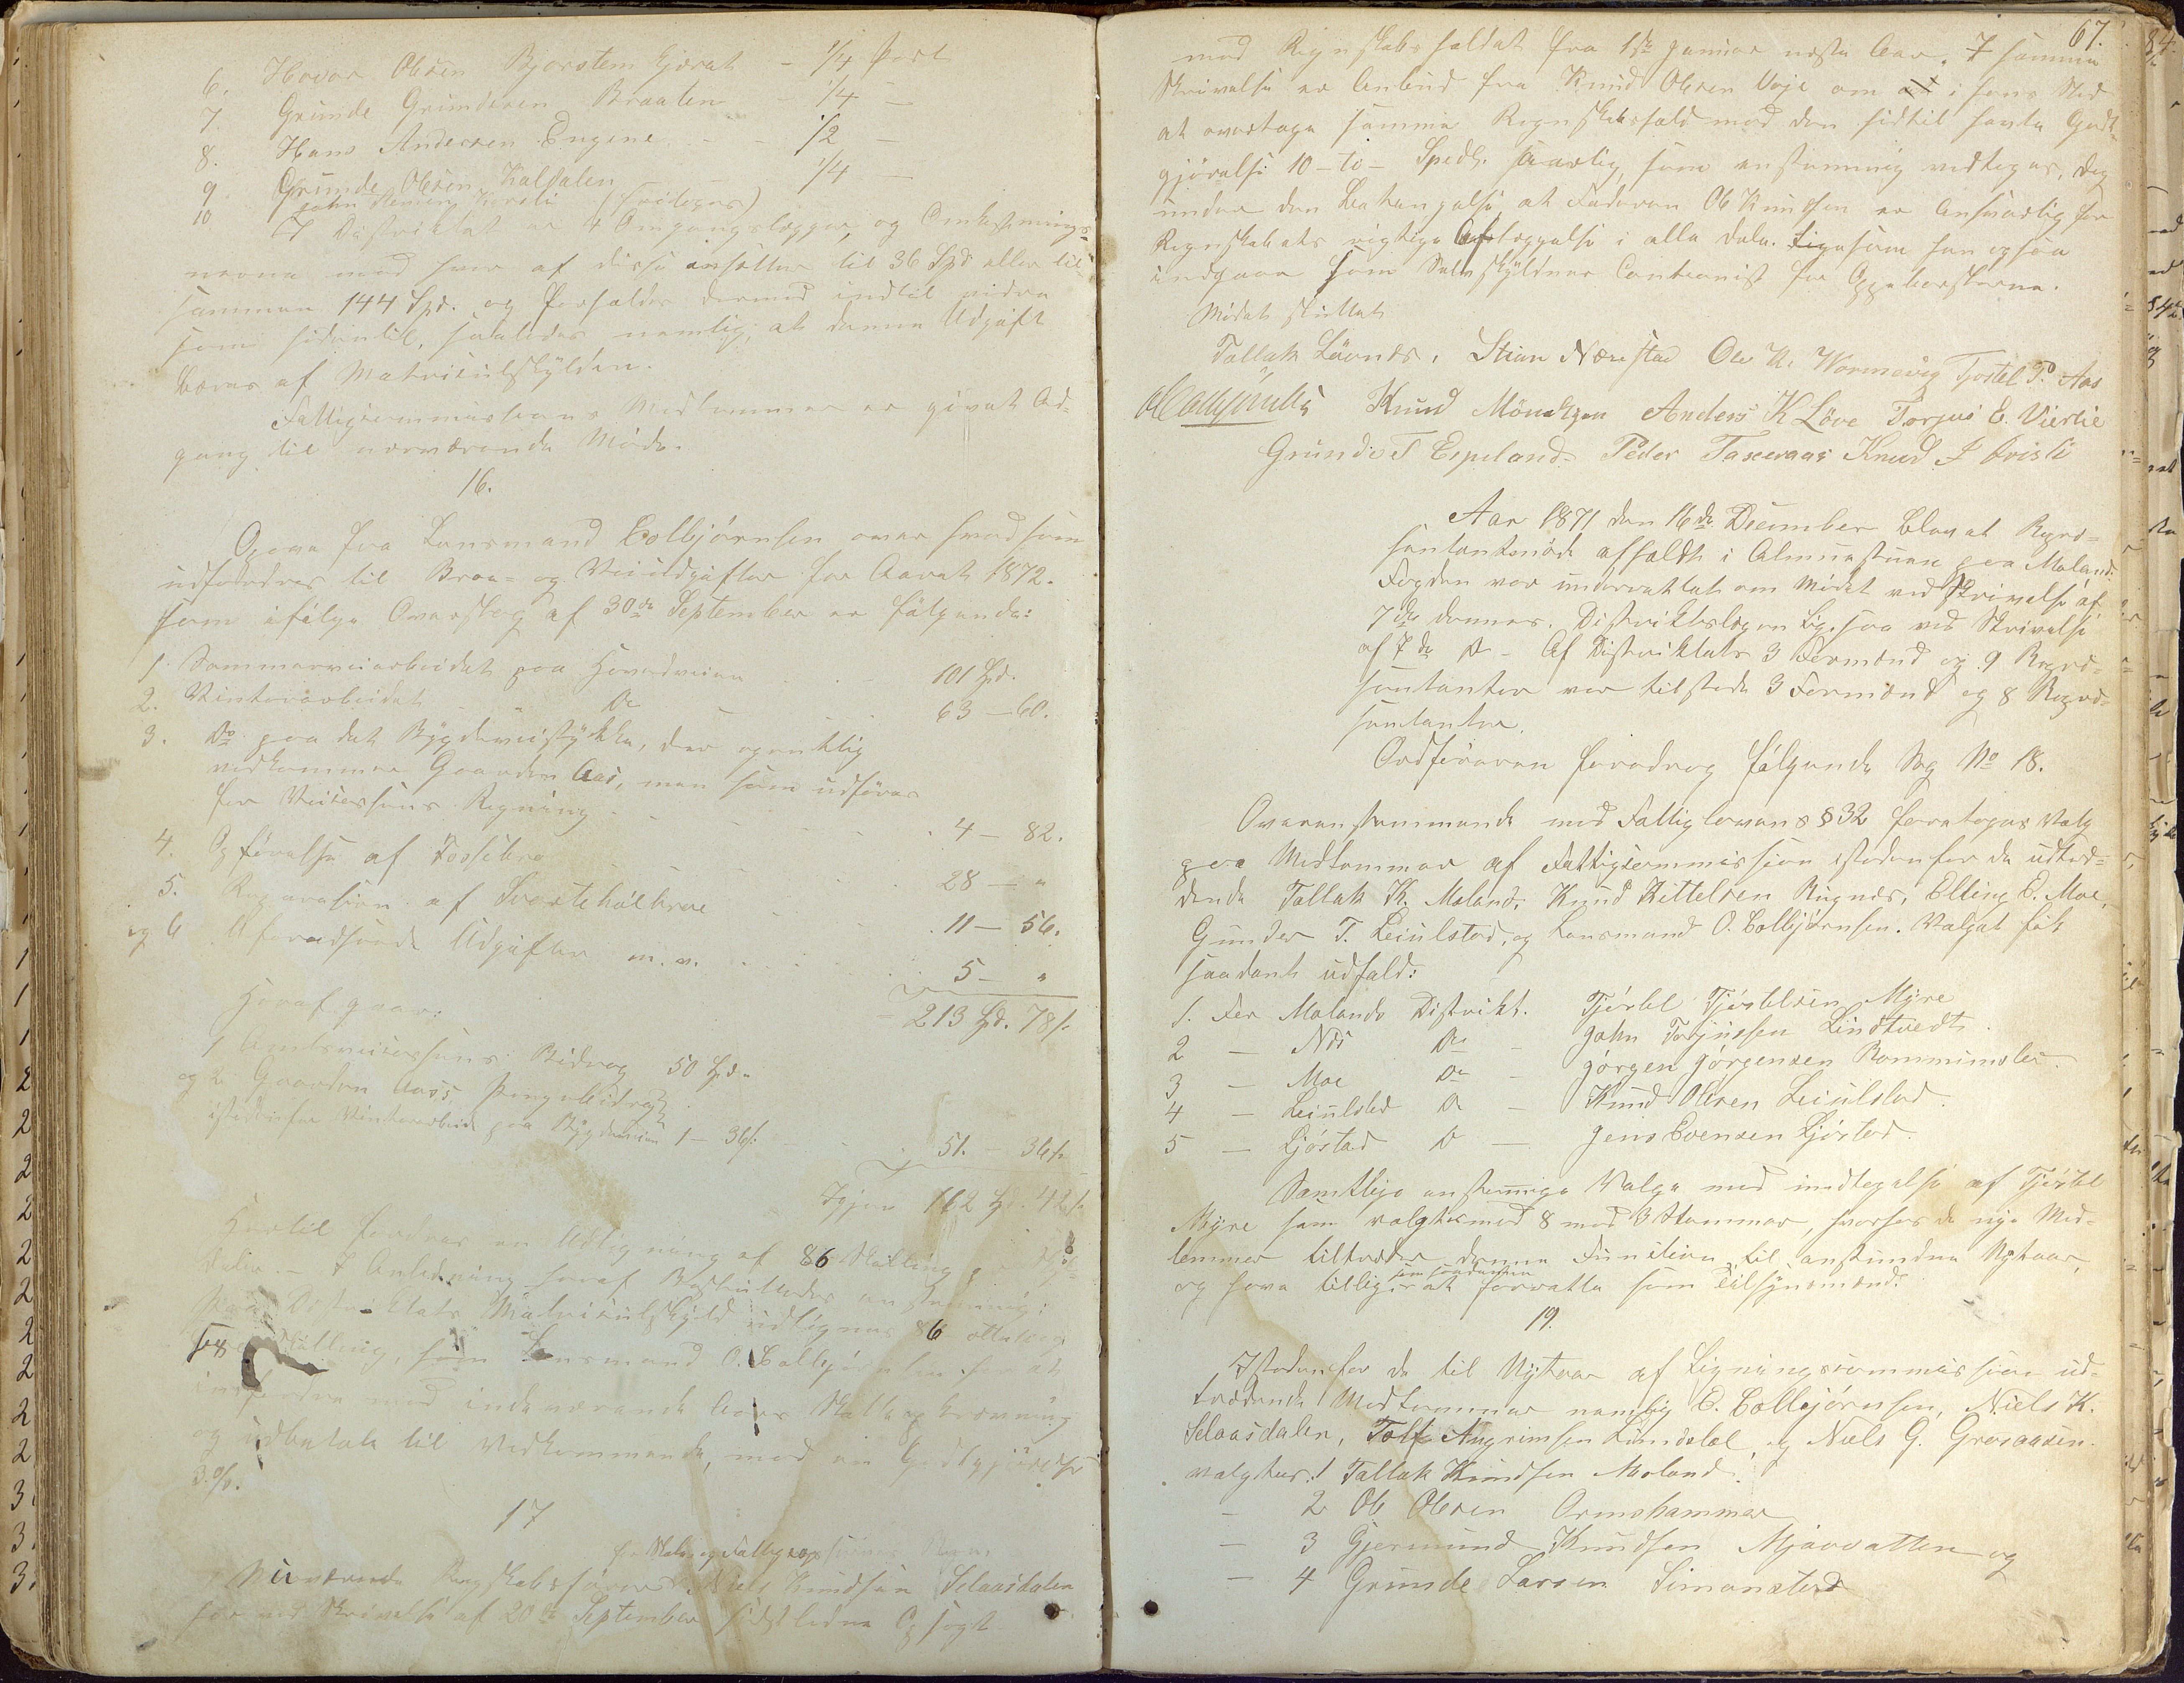 6. Havor Olsen Bjorsten Hjerat - 1/4 Part
7. Grunde Grundesen Braaten - 1/4 -
8. Hans Andersen Engene - - 1/2 -
9. Grunde Olsen Kaldalen 1/4 -
10 John (fritages)
I Distriktet er 4 Omgangslægger, og Omkostning-
nerne med hver af disse ansættes til 36 Spd eller til-
sammen 144 Spd. og forholdes dermed indtil videre
som hidentil, saaledes nemlig, at denne Udgift
bæres af Matriculskylden.
Fattigcommissionens Medlemmer er givet Ad-
gang til nærværende Møde.
16.
Opgave fra Lensmand Colbjørnsen over hvad som
udfordres til Broe- og Veiudgifter for Aaret 1872.
som ifølge Overslag af 30de September er følgende:
1. Sommerveiarbeidet paa Hovedveien - - - 101 Spd.
2. Vinterarbeidet - Do - 63 - 60.
3. Do paa det Bygdeveistykke, der egentlig
vedkommer Gaarden Aas, men som udføres
for Veicassens Regning - - - 4 - 82.
4. Opførelse af Fossebro - - - 28 - "
5. Reparasion af Svartehølbroe - - 11 - 56.
og 6 Uforudseede Udgifter m. v. - - - 5 - "
213 Spd. 78 s.
Heraf gaar:
1 Amtsveicassens Bidrag 50 Spd. "
og 2 Gaarden Aass Pengebidrag
istedenfor Vinterarbeide paa Bygdeveien 1 - 36 s. - - 51. - 36 s.
Igjen 162 Spd. 42 s.
Hertil fordres en Udligning af 86 Skilling
daler. - I Anledning heraf Besluttedes enstemmig:
Paa Distriktets Matriculskyld udlignes 86 otteti og
sex Skilling, som Lensmand O. Colbjørnsen har at
indfordre med indeværende Aars Skatteopkrævning
og udbetale til Vedkommende, mod en Godtgjørelse
3 %.
17
for Skole og Fattig
Nuværende Regnskabsfører Niels Knudsen Selaasdalen
har ved Skrivelse af 20de September sidstleden Opsagt
67.
med Regnskabsholdet fra 1ste Januar næste Aar. I samme
Skrivelse er Anbud fra Knud Olsen Veje om i hans Sted
at overtage samme Regnskabshold mod den hidtil havte Godt-
gjørelse 10 - ti - Spedl. aarlig, som enstemmig vedtoges, dog
under den Betingelse at Faderen Ole Knudsen er Ansvarlig for
Regnskabets rigtige Aflæggelse i alle Dele. Ligesom han ogsaa
indgaar som Selvskyldner Cautionist for Oppebørslerne.
Mødet sluttet
Tallak Løvnes, Stian Nærestad Ole K. Wormevig Tjostel T. Aas
Knud Mönekjen Anders K Löve Torjus E. Vierlie
Grunde T Espeland Peder Taxeraas Knud J Krisli
Aar 1871 den 16de December blev et Repræ-
sentantmøde afholdt i Almuestuen paa Moland.
Fogden var underrettet om Mødet ved Skrivelse af
7de dennes. Distriktslægen ligesaa ved Skrivelse
af 7de Do - Af Distriktets 3 Formænd og 9 Repræ-
sentanter var tilstede 3 Formænd og 8 Repræ-
sentanter.
Ordføreren foredrog følgende Sag No 18.
Overenstemmende med Fattiglovens § 32 foretoges Valg
paa Medlemmer af Fattigcommission istedenfor de udtræ-
dende Tallak K. Moland, Knud Kittelsen Rugnes, Elling E. Moe,
Gunder T. Leiulstad, og Lensmand O. Colbjørnsen. Valget fik
saadant udfald:
1. For Molands Distrikt. Tjöstel Tjöstelsen Myre
2 - Nes Do - John Torjussen Lindtvedt
3 - Moe Do - Jörgen Jörgensen Rommunslei
4 - Leiulstad Do - Knud Olsen Leiulstad
5 - Ljöstad Do - Jens Evensen Ljöstad
Samtlige enstemmige Valge med indtagelse af Tjöstel
Myre som valgtes med 8 mod 3 Stemmer, hvorfor de nye Med-
lemmer tiltræder denne Function til anstundne Nytaar,
og have tilligemed som saadanne at forrette som Tilsynsmænd.
19.
Istedenfor de til Nytaar af Ligningscommissionen ud-
trædende Medlemmer nemlig O. Colbjørnsen, Niels K.
Selaasdalen, Tolf Angrimsen Lundelæl, og Niels G. Groseaasen.
valgtes: 1 Tallak Knudsen Moland
- 2 Ole Olsen Ormshammer
- 3 Gjermund Knudsen Mjaavatten og
- 4 Grunde Larsen Simonstad